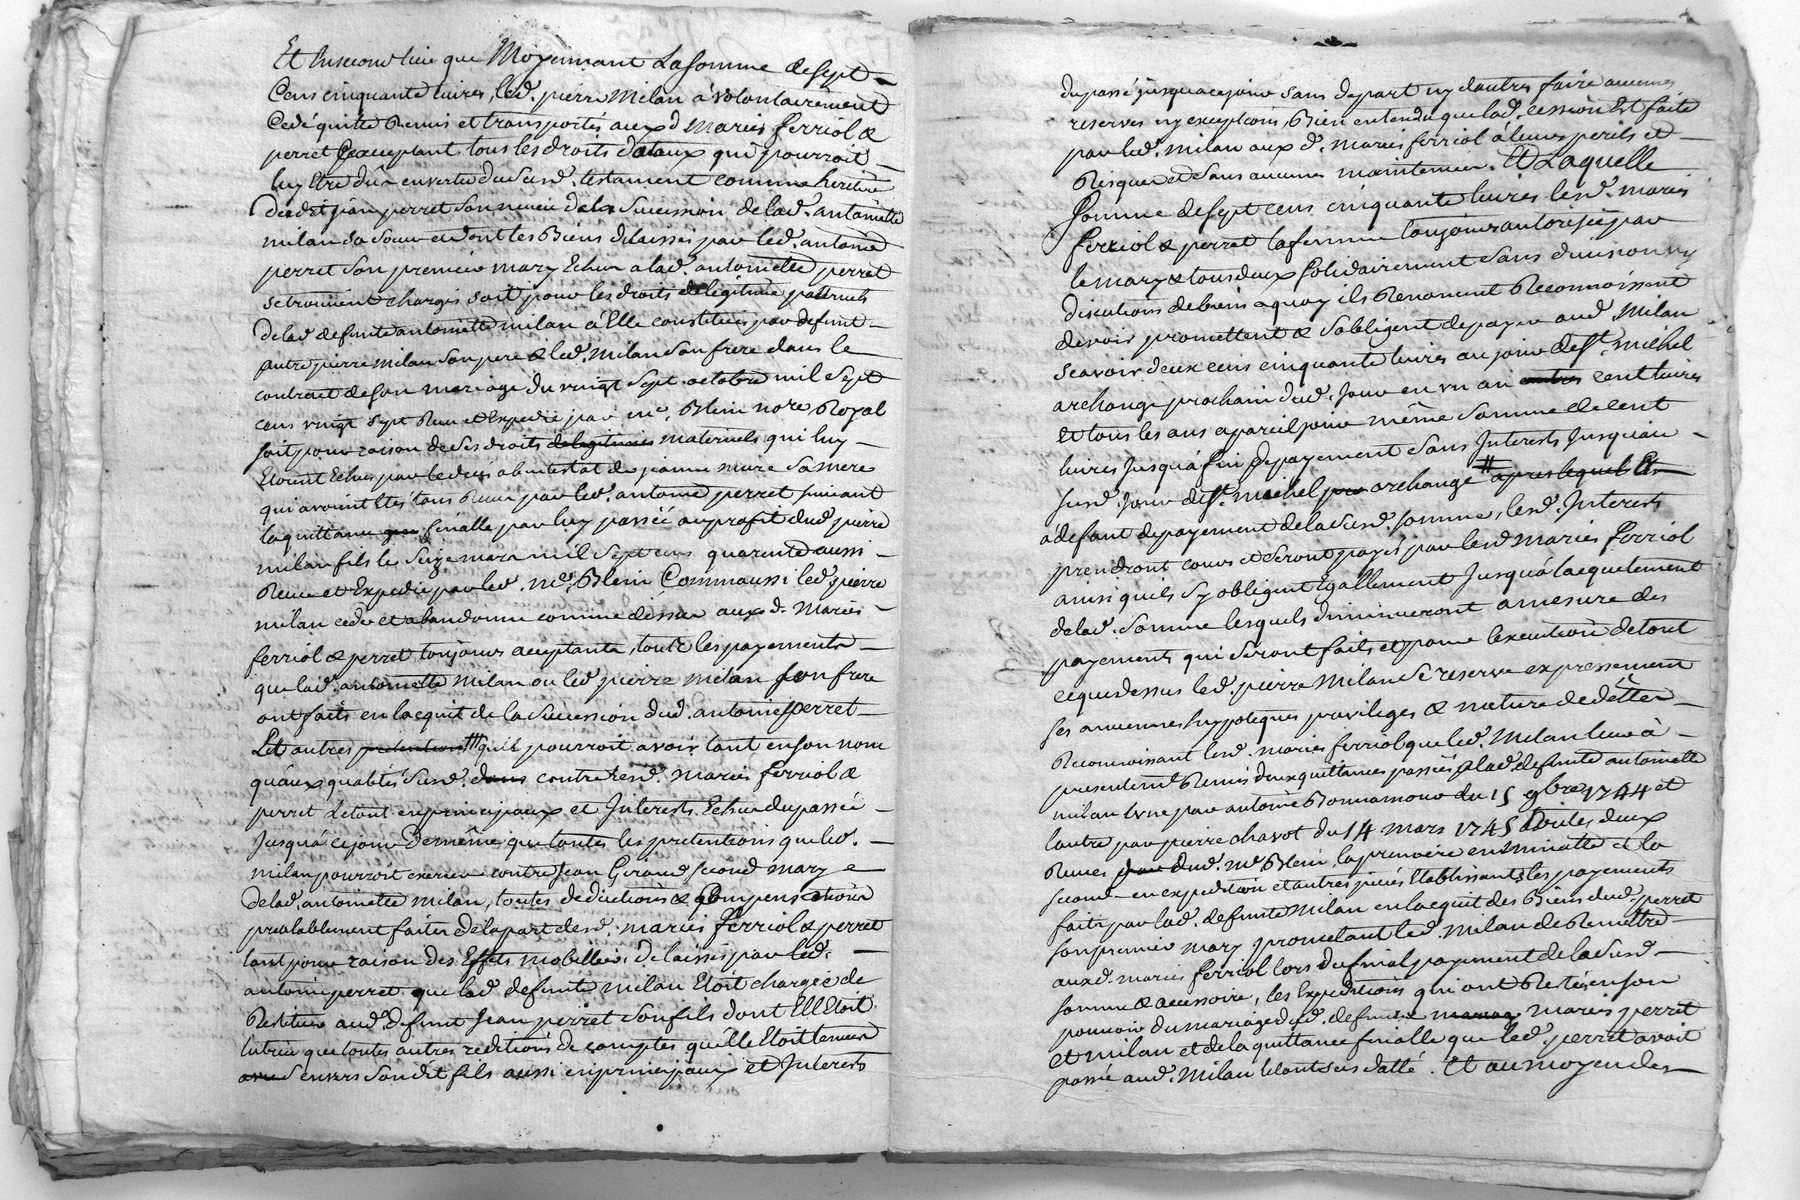 Et En second lieu que Moyennant La somme de sept
Cens cinquante livres, led. pierre Milan a volontairement
Cedé quitté Remis et transportés auxd mariés ferriol &
perret acceptant tous les droits dotaux qui pourroit
luy Etre dûs en vertu du susd. testament comme heritier
dud. jean perret son neveu de la succession de lad. antoinette
milan sa soeur et dont les Biens delaissés par led. antoine
perret son premier mary Echeu a lad. antoinette perret
se trouvent chargés soit pour les droits de legitime paternels
de lad defunte antoinette milan à Elle constitués par defunt
autre pierre milan son pere & led. Milan son frere dans le
contract de son mariage du vingt sept octobre mil sept
cens vingt sept Receu et Expedié par me. Blein nore Royal
soit pour raison de ses droits de legitimes maternels qui luy
Etoient Echus par le deces abintestat de jeanne mure sa mere
qui avoient Etés tous Receu par led. antoine perret suivant
la quittance finalle par luy passée au profit dud pierre
milan fils le seize mars mil sept cens quarente aussi
Receue et Expediée par led. me. Blein Comm aussi led. pierre
milan cede et abandonne comme dessus auxd. Mariés
ferriol & perret toujours acceptants, touts les payements
que lad. antoinette Milan ou led. pierre milan son frere
ont faits en l'acquit de la succession dud. antoine perret
Et autres pretentions # qu'il pourroit avoir tant en son nom
qu'aux qualités susd. dans contre lesd. mariés ferriol &
perret Et tout en principaux et Interests Echus du passé
Jusqu'à ce jour De même que toutes les pretentions que led.
milan pourroit exercer contre Jean Giraud second mary
de lad. antoinette milan, toutes deductions & Compensations
prealablement faites de la part desd. mariés ferriol & perret
tant pour raison des Effets mobiliers delaissés par led.
antoine perret que lad defunte milan Etoit chargée de
Restituer aud. defunt Jean perret son fils dont Ell Etoit
tutrice que toutes autres redditions de comptes qu'elle Etoit tenue
envers son dit fils aussi en principaux et Interests
du passé jusqua ce jour sans de part ny d'autres faire aucunes
reserves ny exceptions, Bien entendu que lad. cession Est faite
par led. milan aux d. mariés ferriol à leurs perils et
Risques et sans aucune maintenue. Et Laquelle
Somme de sept cens cinquante livres lesd. mariés
ferriol & perret la femme toujours autorisée par
le mary & tous deux solidairement sans division ny
discutions de biens a quoy ils Renoncent Reconnoissent
devoir promettent & s'obligent de payer aud. Milan
scavoir deux cens cinquante livres au jour de st. michel
archange prochain dud. jour en un an cent livres
Et tous les ans a pareil jour même somme de cent
livres jusqu'a fin de payement sans Interests Jusqu'au
susd. jour de st. michel archange # apres lequel Et
à defaut de payement de la susd. somme, lesd. Interests
prendront cours et seront payés par lesd mariés ferriol
ainsi quils s'y obligent Egallement Jusqu'a l'acquitement
de lad. somme lesquels diminueront a mesure des
payements qui seront faits et pour l'execution de tout
ce que dessus led. pierre Milan se reserve expressement
ses anciennes hypoteques privileges & nature de dettes
Reconnoissant lesd. mariés ferriol que led. Milan leur à
presentemt Remis deux quittances passées a lad defunte antoinette
milan L'une par antoine Bonnamour du 15 9bre 1744 et
l'autre par pierre chavot du 14 mars 1745 Toutes deux
Receues dud. me. Blein, la premiere en minutte et la
seconde en expedition et autres pieces Etablissants les payements
faits par lad. defunte Milan en l'acquit des Biens dud. perret
son premier mary promettant led. milan de Remettre
auxd. mariés ferriol lors du final payement de la susd
somme & accessoire, les Expeditions qui ont Restées en son
pouvoir du mariage dud. defunt mariés perret
et milan et de la quittance finalle que led. perret avoit
passé aud. Milan le tout sus datté. Et au moyen des